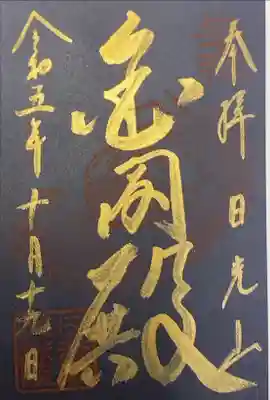 奉拝 日光山
金閣殿
令和五年十月十九日